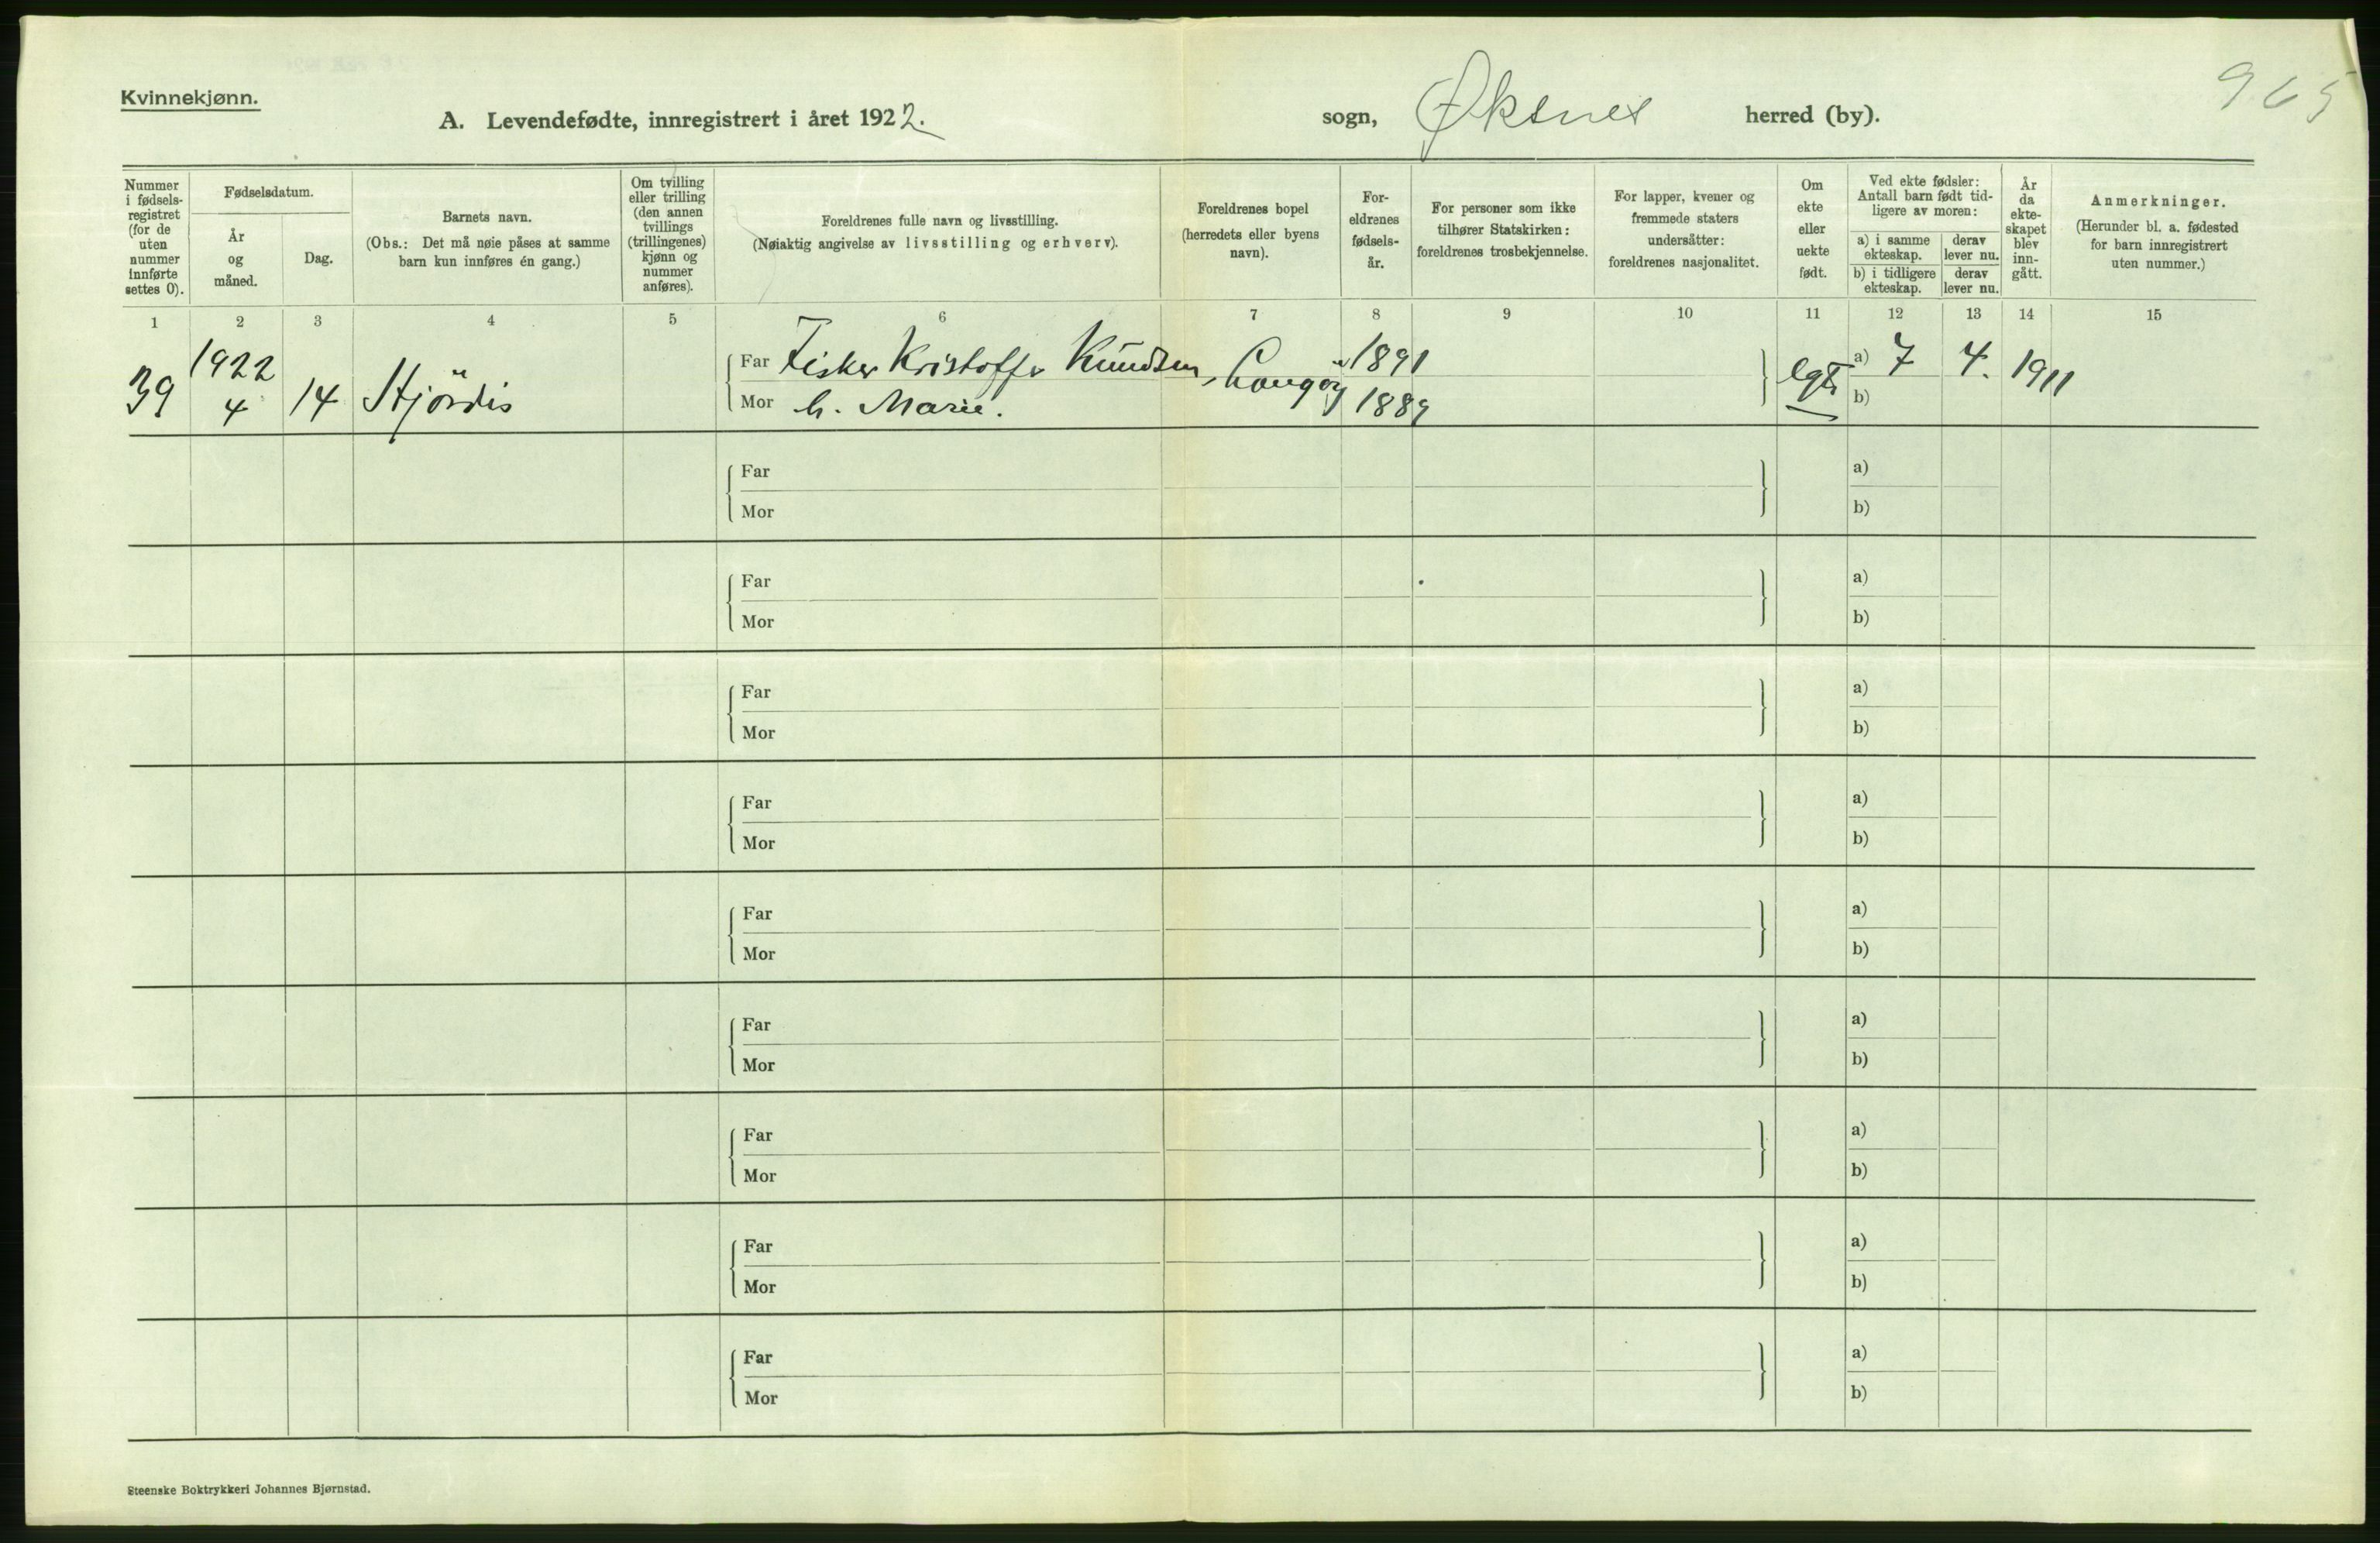 Kvinnekjønn.
A. Levendefødte, innregistrert i året 1922.
sogn, Øksnes herred (by).
965
Nummer i fødselsregistret (for de uten nummer innførte settes 0).
Fødselsdatum.
År og måned.
Dag.
Barnets navn.
(Obs.: Det må nøie påses at samme barn kun innføres én gang.)
Om tvilling eller trilling (den annen tvillings (trillingenes) kjønn og nummer anføres).
Foreldrenes fulle navn og livsstilling.
(Nøiaktig angivelse av livsstilling og erhverv).
Foreldrenes bopel (herredets eller byens navn).
For-eldrenes fødsels-år.
For personer som ikke tilhører Statskirken: foreldrenes trosbekjennelse.
For lapper, kvener og fremmede staters undersåtter: foreldrenes nasjonalitet.
Om ekte eller uekte født.
Ved ekte fødsler: Antall barn født tidligere av moren:
a) i samme ekteskap.
derav lever nu.
b) i tidligere ekteskap.
derav lever nu.
År da ekte-skapet blev inn-gått.
Anmerkninger.
(Herunder bl. a. fødested for barn innregistrert uten nummer.)
1 2 3 4 5 6 7 8 9 10 11 12 13 14 15
39 1922 4 14 Hjördis
Far Fisker Kristoffer Knudsen, Langöy 1891 a) 7 4. 1911
Mor h. Marie. 1889 b)
Far a)
Mor b)
Far a)
Mor b)
Far a)
Mor b)
Far a)
Mor b)
Far a)
Mor b)
Far a)
Mor b)
Far a)
Mor b)
Far a)
Mor b)
Far a)
Mor b)
Steenske Boktrykkeri Johannes Bjørnstad.